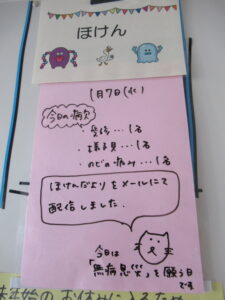 ほけん
1月7日(水)
今日の病欠
・発熱…1名
・様子見…1名
・のどの痛み…1名
ほけんだよりをメールにて
配信しました。
今日は
「無病息災」を願う日
です